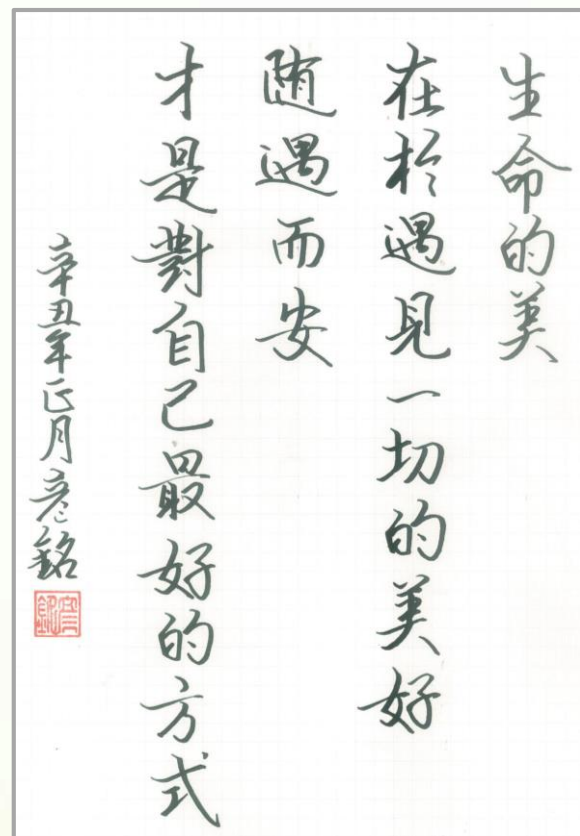 生命的美
在於遇見一切的美好
随遇而安
才是對自己最好的方式
辛丑年正月彦銘
彦銘